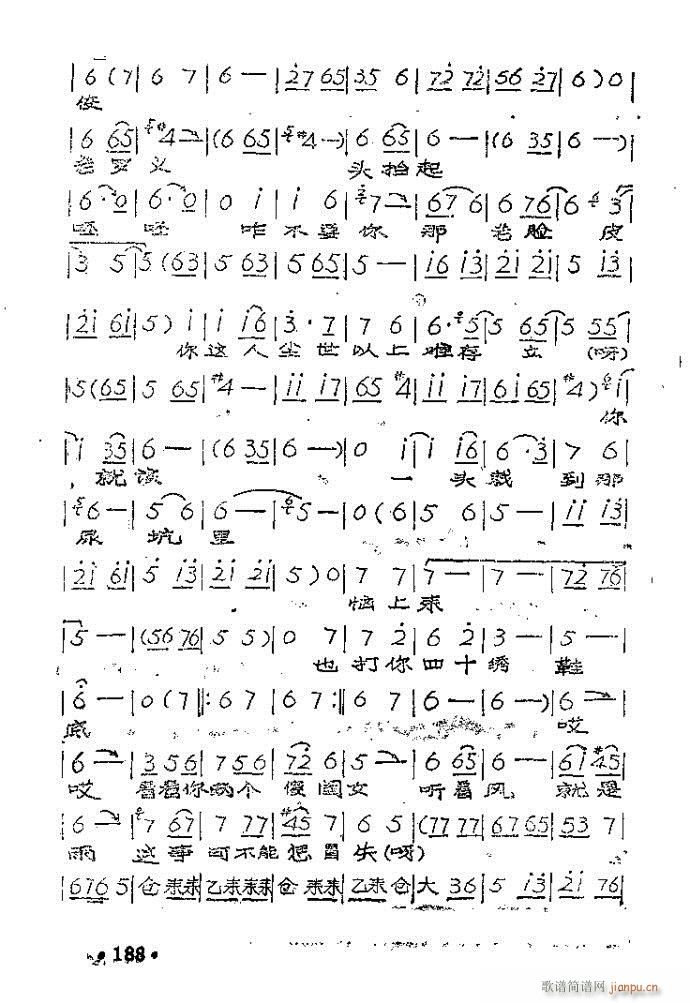 |6 (7|6 7|6 —|2̇7 65|35 6|72̇ 72̇|56 2̇7|6)0|
|6 65|#4 —|(6 65|#4 —)|6 65|6 —|(6 35|6 —)|
老罗义 头抬起
|6·0|6·0|0 i|i 6|7 —|67 6|6 76|6 3̇|
呸 呸 咋不要你 那 老脸 皮
|3̇ 5|5 (63|5 63|5 65|5 —|i6 i3̇|2̇i 2̇i|5 i3̇|
|2̇i 6i|5) i|i i6|3̇·7|7 6|6·5|5 65|5 55|
你这人尘世以上难存 立 (呀)
|5(65|5 65|#4 —|ii i7|65 #4|ii i7|6i 65|#4) i|
你
|i 35|6 —|(6 35|6 —)|0 i|i i6|6·3̇|7 6|
就该 一 头栽 到那
|6 —|5 6|6 —|5 —|0 (6|5 6|5 —|ii i3̇|
尿 坑 里
|2̇i 6i|5 i3̇|2̇i 2̇i|5) 0|7 7|7 —|7 —|72̇ 76|
恼上来
|5 —|(56 76|5 5)|0 7|7 2̇|6 2̇|3 —|5 —|
也打你四十绣 鞋
|6 —|0 (7‖:67|67:‖67|6 —|6 —)|6 —|
底 哎
|6 —|3 56|7 56|72̇ 6|5 —|6 65|6 —|6i #45|
哎 看看你两个 傻闺女 听着风, 就是
|6 —|7 67|7 77|#45 7|6 5|(77 77|67 65|53 7|
雨 这事可不能把冒失(呀)
|676 5|仓 来来|乙来来来|仓 来来|乙来仓|大 36|5 i3̇|2̇i 76|
• 188 •
歌谱简谱网
jianpu.cn